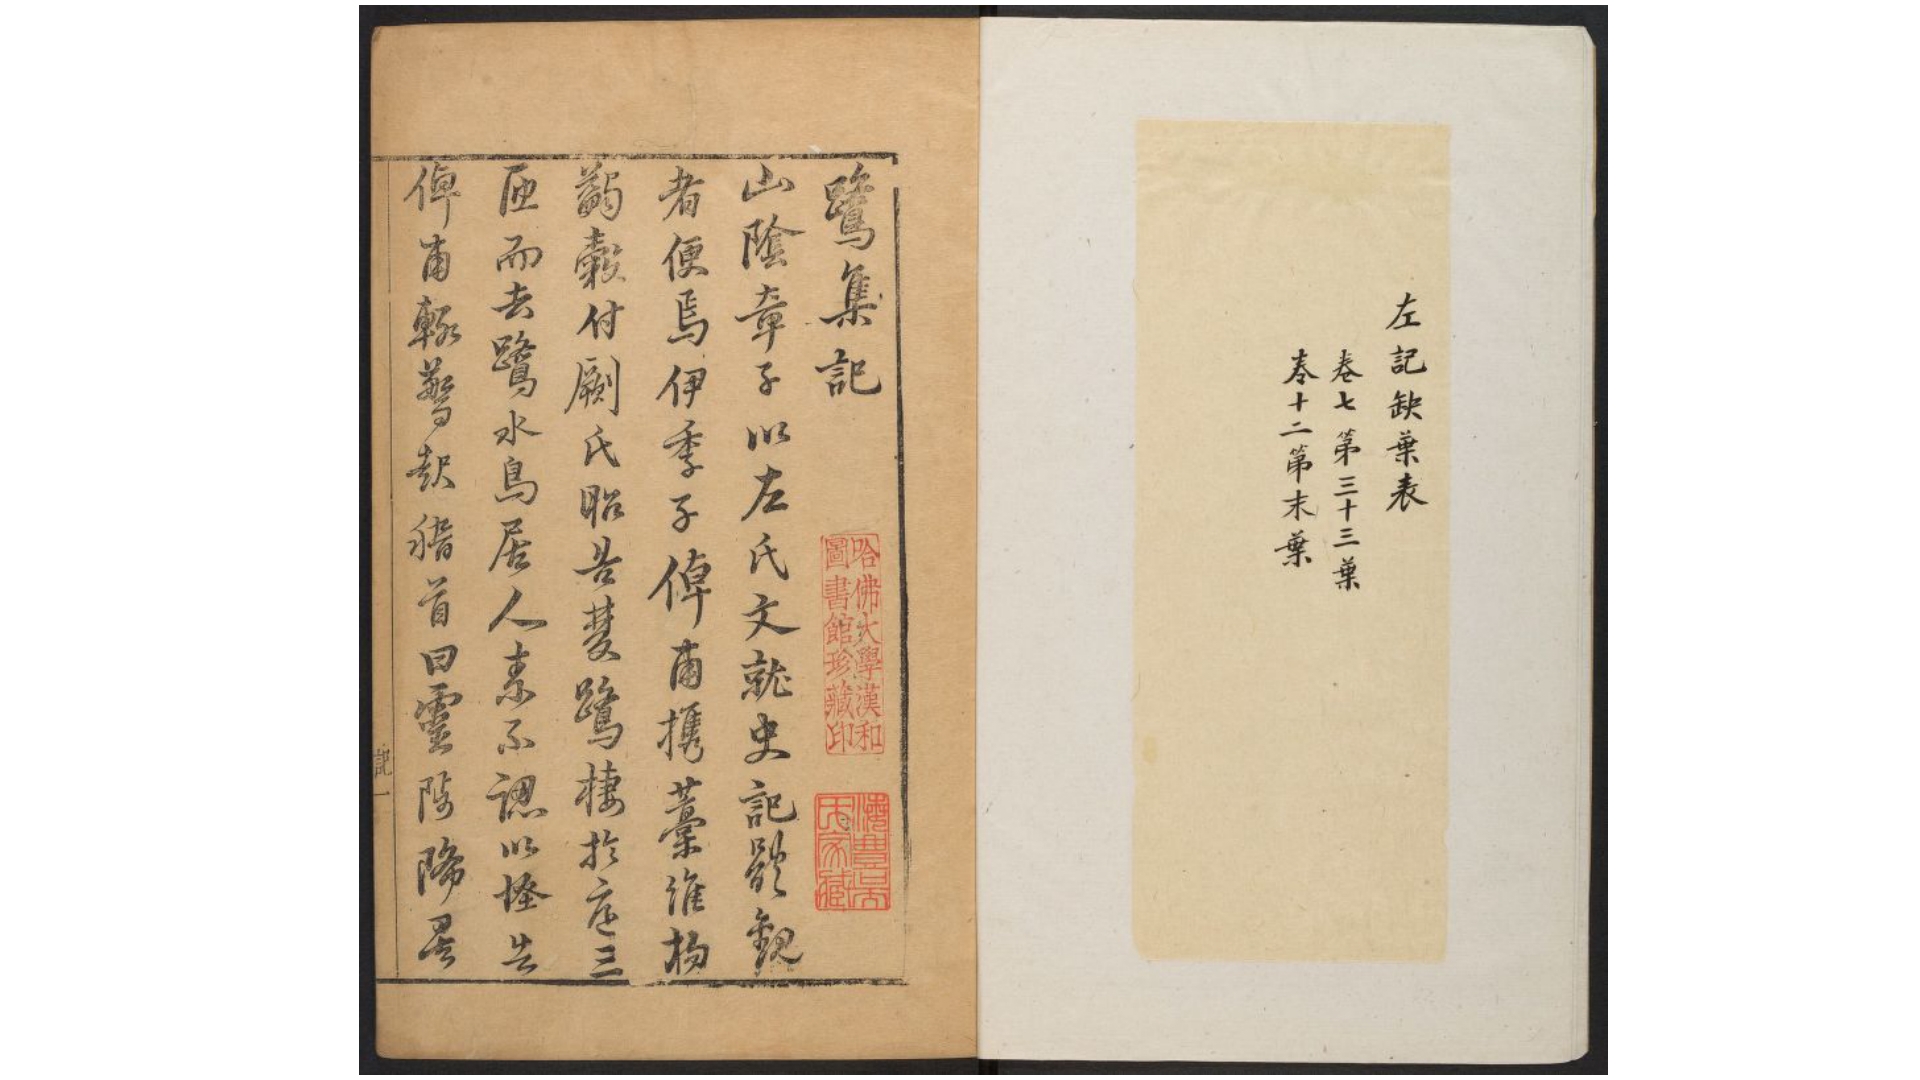 左記缺葉表
卷七第三十三葉
卷十二第末葉
鷺集記
山陰章子以左氏文就史記體觀
者便焉伊季子倬甫攜藁維揚
蠲穀付劂氏昭告雙鷺棲於庭三
匝而去鷺水鳥居人素不認以怪告
倬甫輒驚起稽首曰靈降
哈佛大學漢和
圖書館珍藏印
氏家藏
記一